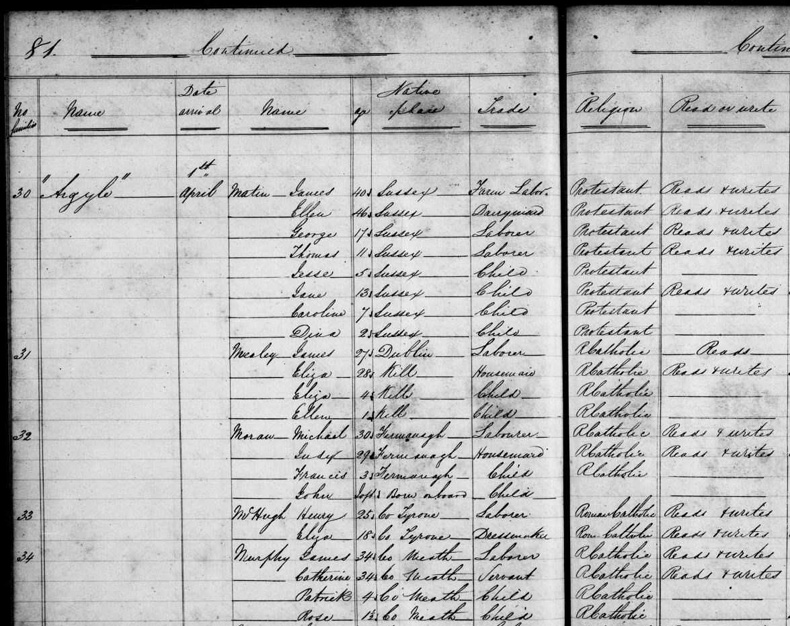 81. Continued Contin
No families Name Date arrival Name age Native place Trade Religion Read or write
1st
30 "Argyle" April Matin James 40 Sussex Farm Labor. Protestant Reads & writes
Ellen 46 Sussex Dairymaid Protestant Reads & writes
George 17 Sussex Laborer Protestant Reads & writes
Thomas 11 Sussex Laborer Protestant Reads & writes
Jesse 5 Sussex Child Protestant
Jane 13 Sussex Child Protestant Reads & writes
Caroline 7 Sussex Child Protestant
Dina 2 Sussex Child Protestant
31 Mealey James 27 Dublin Laborer RCatholic Reads
Eliza 28 Kill Housemaid RCatholic Reads & writes
Eliza 4 Kill Child RCatholic
Ellen 1 Kill Child RCatholic
32 Moran Michael 30 Fermanagh Labourer RCatholic Reads & writes
29 Fermanagh Housemaid RCatholic Reads & writes
Francis 3 Fermanagh Child RCatholic
John Inft Born onboard Child
33 McHugh Henry 25 Co Tyrone Laborer Roman Catholic Reads & writes
Eliza 18 Co Tyrone Dressmaker Rom. Catholic Reads & writes
34 Murphy James 34 Co Meath Laborer RCatholic Reads & writes
Catherine 34 Co Meath Servant RCatholic Reads & writes
Patrick 4 Co Meath Child RCatholic
Rose Co Meath Child RCatholic